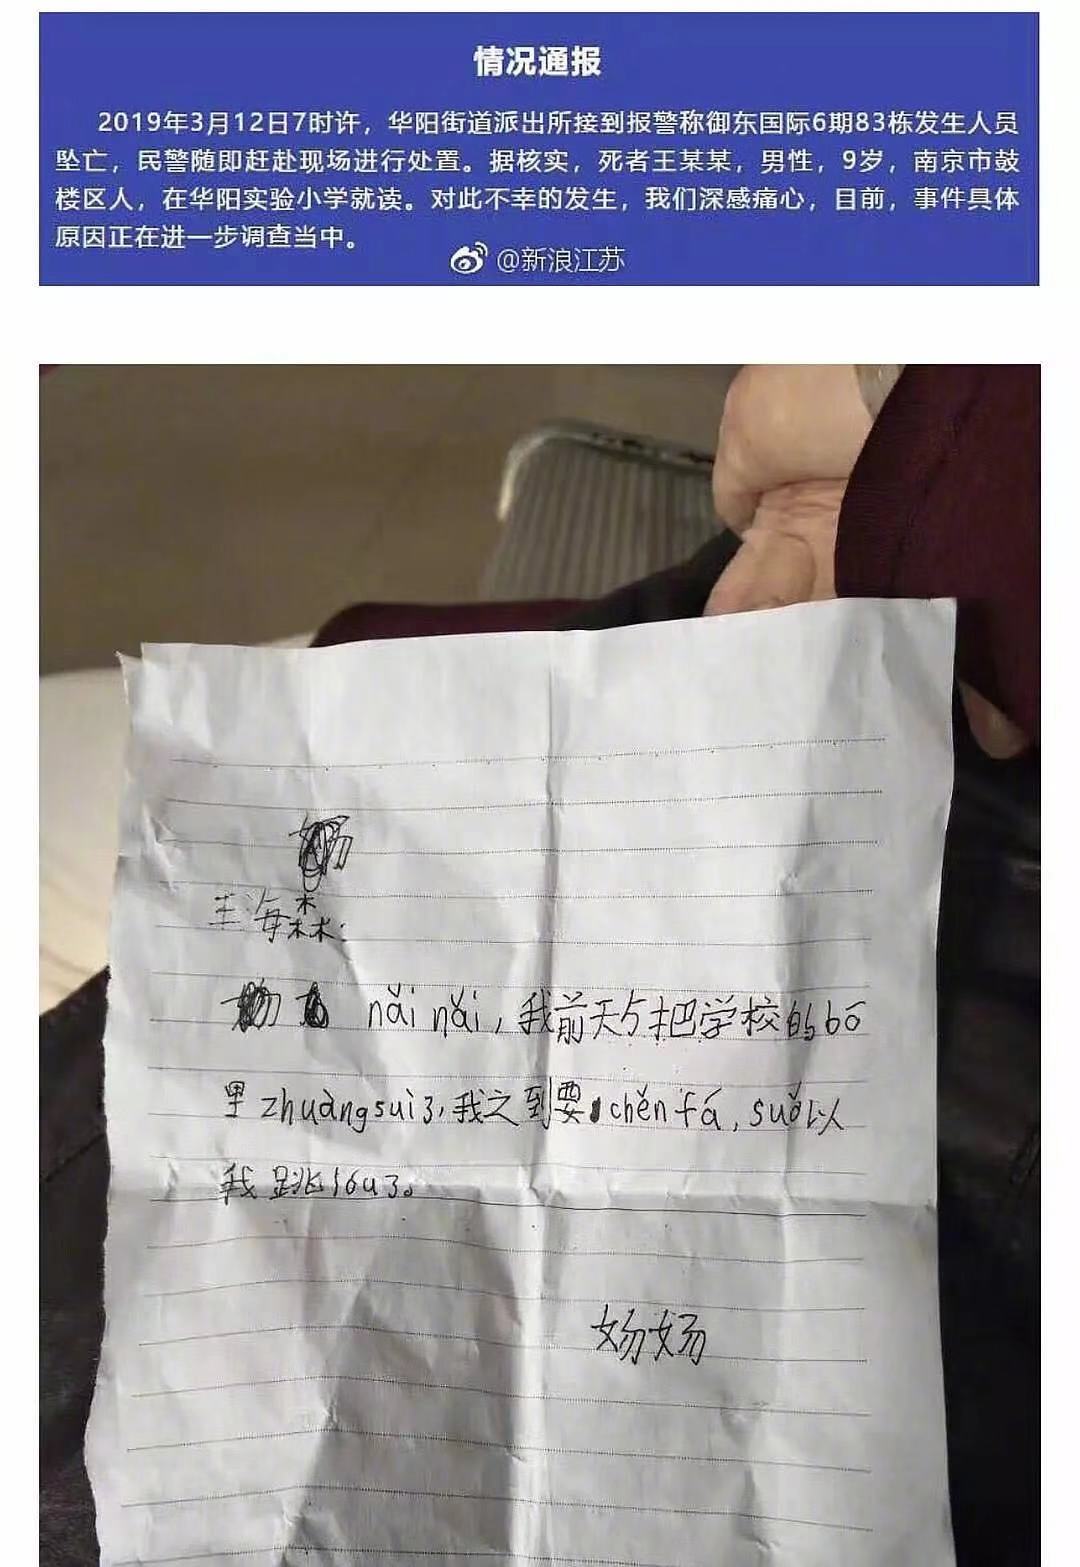 情况通报
2019年3月12日7时许，华阳街道派出所接到报警称御东国际6期83栋发生人员
坠亡，民警随即赶赴现场进行处置。据核实，死者王某某，男性，9岁，南京市鼓
楼区人，在华阳实验小学就读。对此不幸的发生，我们深感痛心，目前，事件具体
原因正在进一步调查当中。
@新浪江苏
王海森：
nǎi nǎi，我前天把学校的bō
里zhuàngsuì了，我之到要chěnfá，suǒ以
我跳lóu了。